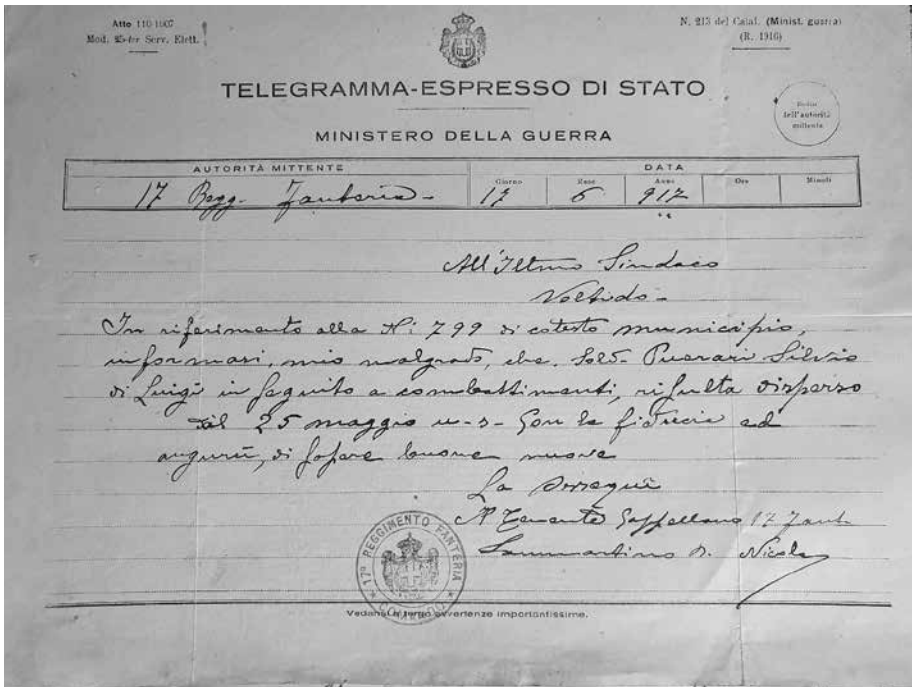 Atto 110-1907
Mod. Serv. Elett.
N. 213 del Catal. (Minist. guerra)
(R. 1916)
TELEGRAMMA-ESPRESSO DI STATO
MINISTERO DELLA GUERRA
Bollo
dell'autorità
mittente
AUTORITÀ MITTENTE
DATA
Giorno Mese Anno Ore Minuti
17 Regg. Fanteria - 17 6 917
All'Illmo Sindaco
Voltido -
In riferimento alla N: 799 di cotesto municipio,
informasi, mio malgrado, che Sold- Puerari Silvio
di Luigi in seguito a combattimenti, risulta disperso
dal 25 maggio u-s- Con la fiducia ed
augurii, di sapere buone nuove
La
Il Tenente Cappellano 17 Fant.
Sammartino D. Nicola
17° REGGIMENTO FANTERIA
COMANDO
Vedansi a tergo avvertenze importantissime.